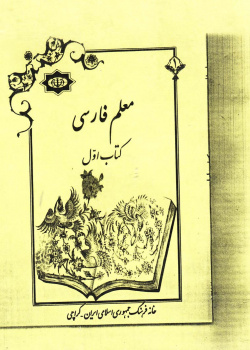 معلم فارسی
کتاب اوّل
خانه فرهنگ جمهوری اسلامی ایران - کراچی